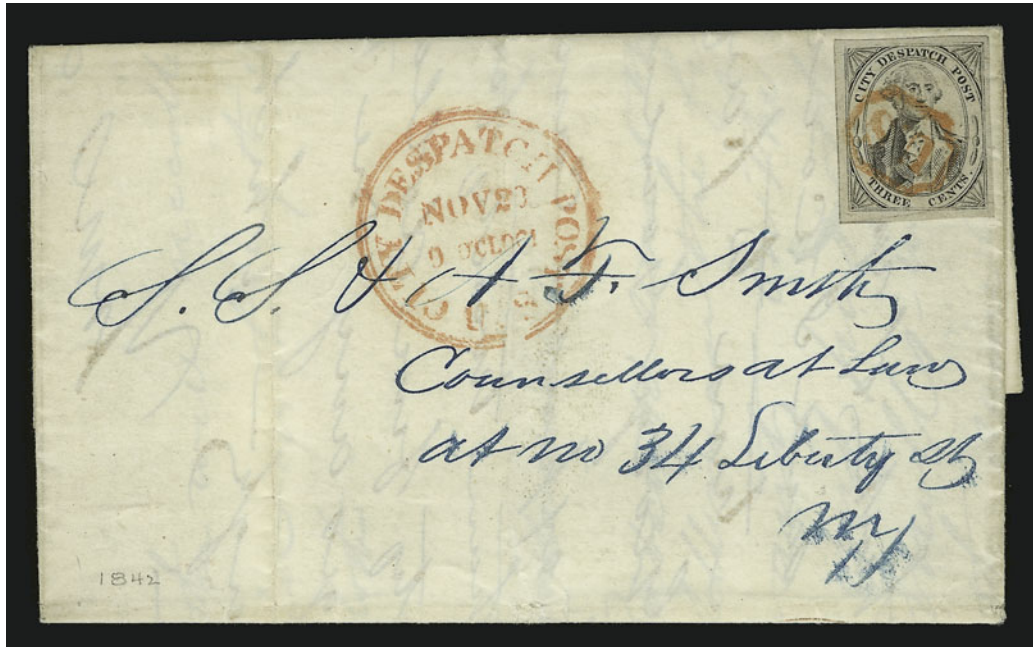 CITY DESPATCH POST
THREE CENTS.
CITY DESPATCH POST
NOV 23
O'CLOCK
U S
S. S. & A F. Smith
Counsellors at Law
at no 34 Liberty St
NY
1842